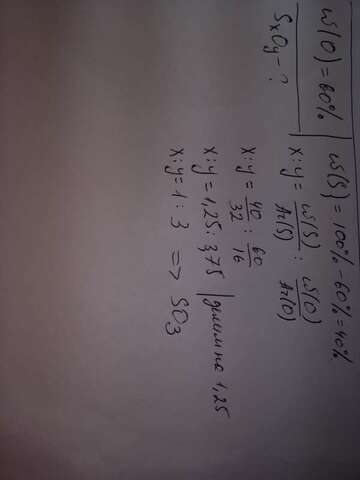 ω(O) = 60%
SxOy - ?
ω(S) = 100% - 60% = 40%
x:y = ω(S)/Ar(S) : ω(O)/Ar(O)
x:y = 40/32 : 60/16
x:y = 1,25 : 3,75 | делим на 1,25
x:y = 1 : 3 => SO3